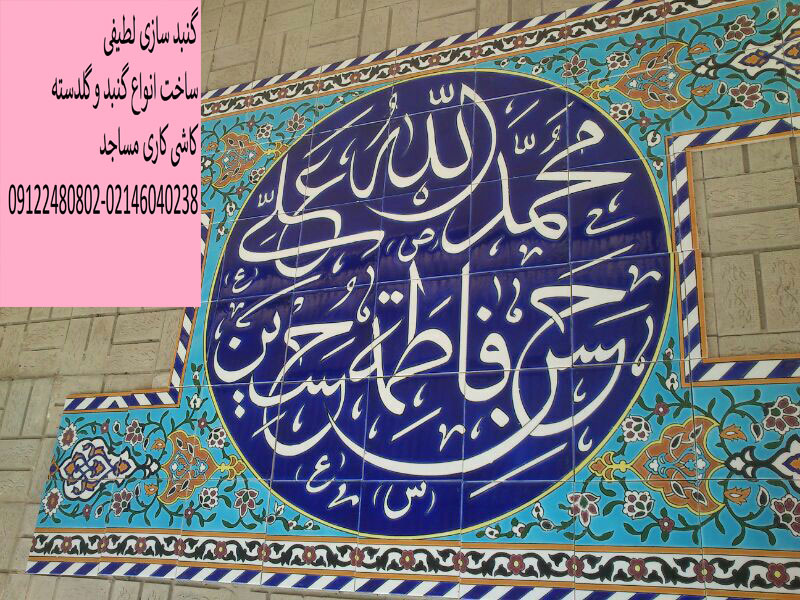 گنبد سازی لطیفی
ساخت انواع گنبد و گلدسته
کاشی کاری مساجد
09122480802-02146040238
الله محمد علی
(ص) (ع)
فاطمه حسن حسین
(س) (ع)